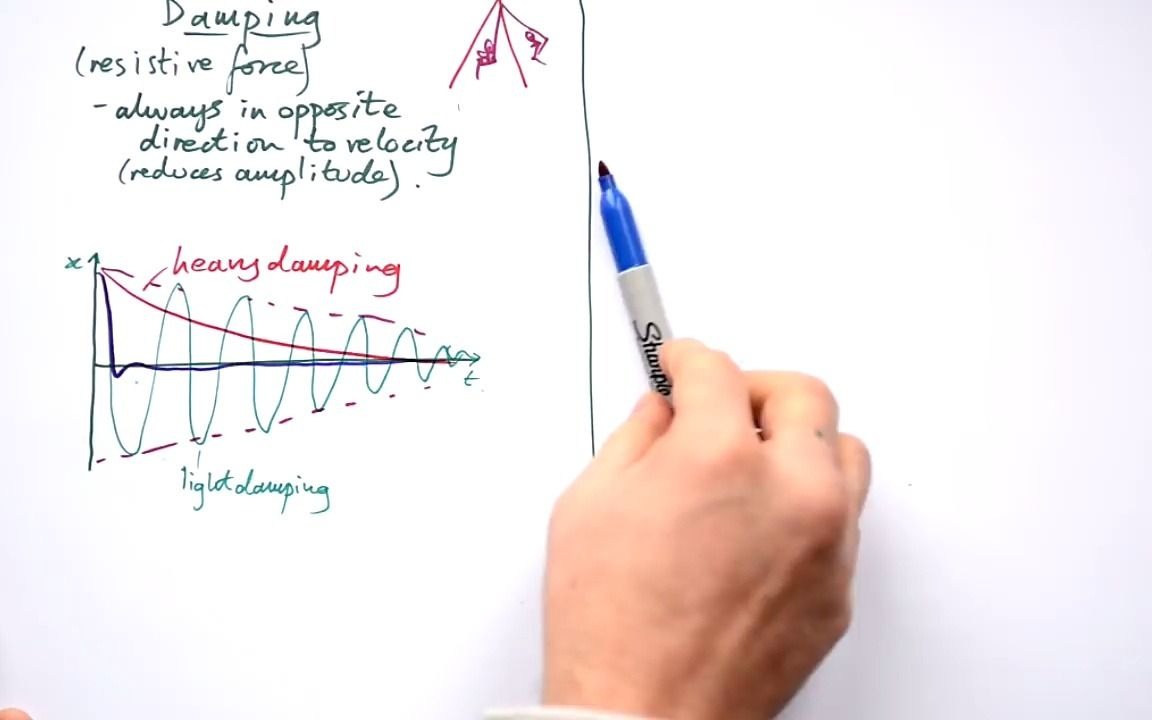 Damping
(resistive force)
- always in opposite
direction to velocity
(reduces amplitude).
x
heavy damping
t
light damping
Sharpie